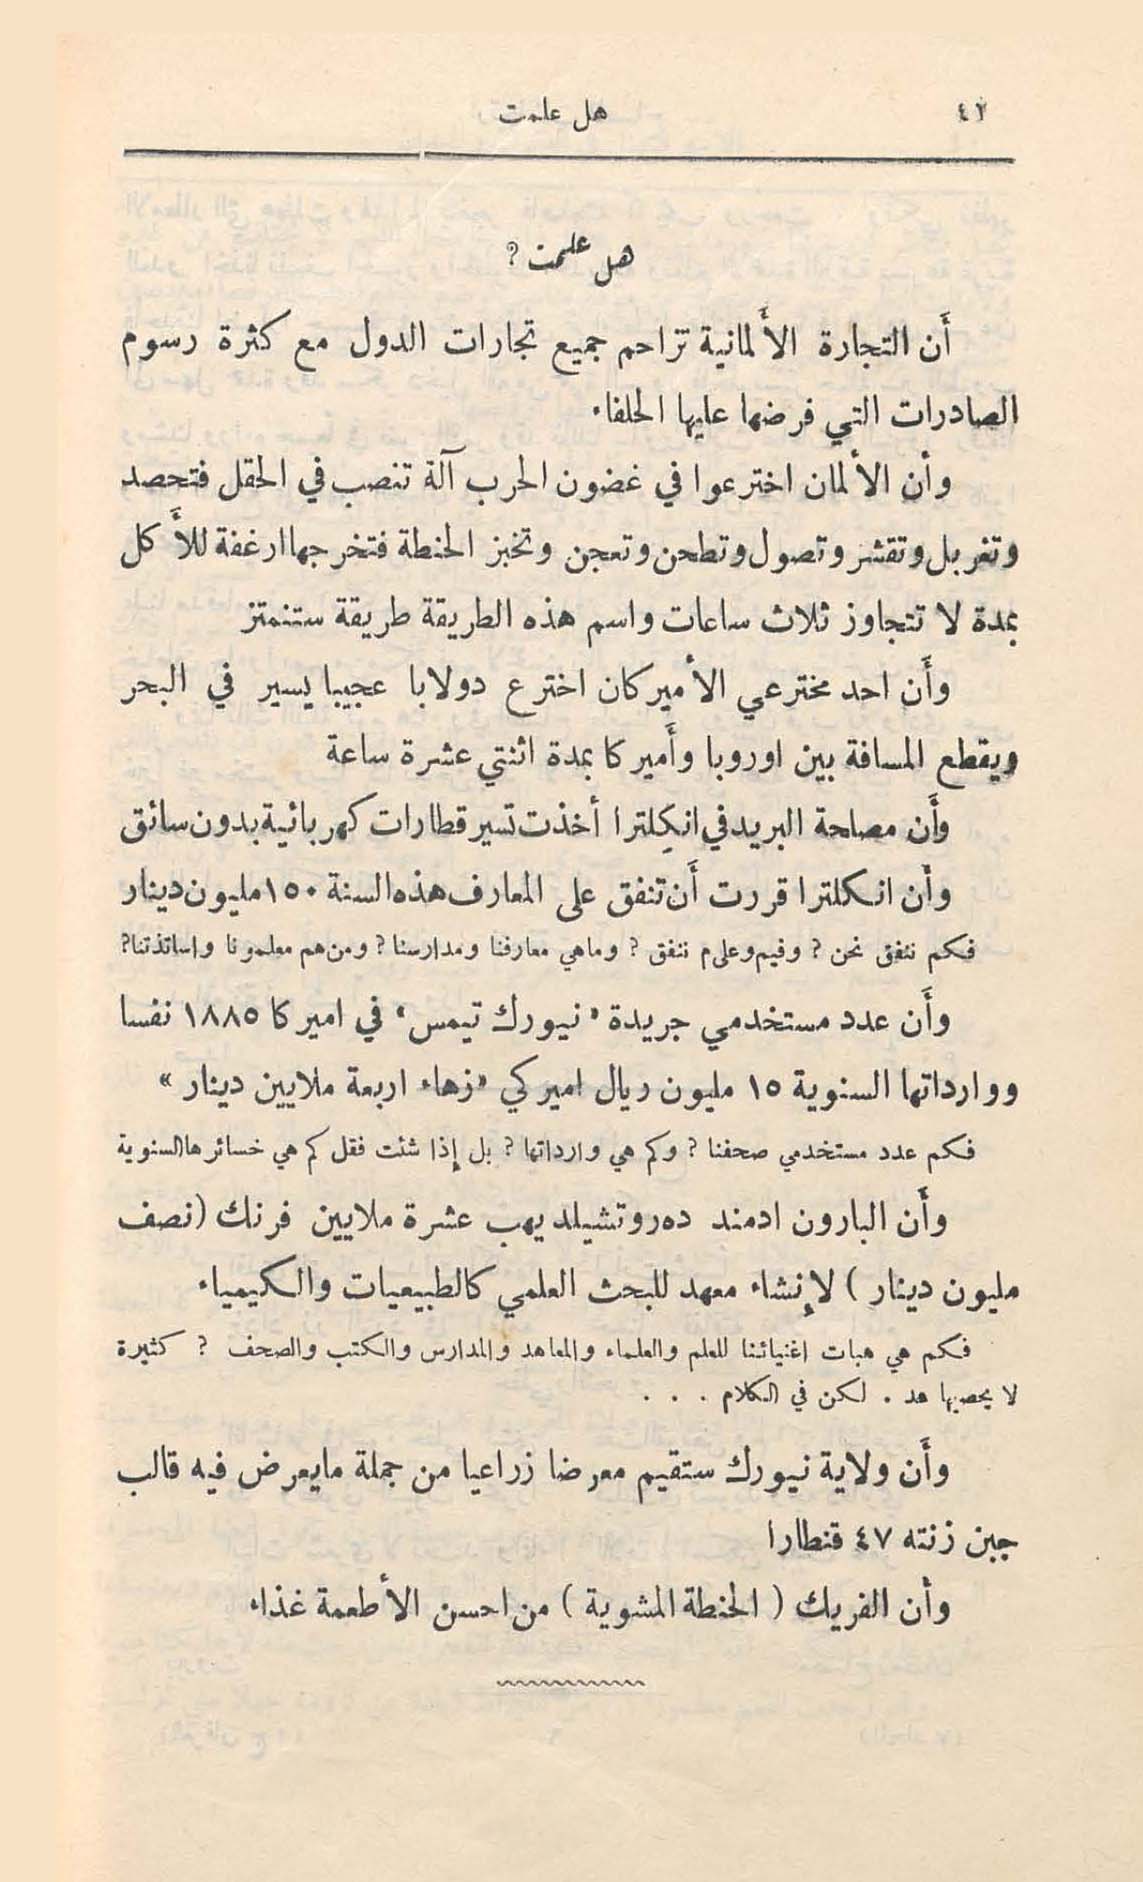 ٤٢ هل علمت
هل علمت ؟
أَن التجارة الأَلمانية تزاحم جميع تجارات الدول مع كثرة رسوم
الصادرات التي فرضها عليها الحلفاء
وأن الألمان اخترعوا في غضون الحرب آلة تنصب في الحقل فتحصد
وتغربل وتقشر وتصول وتطحن وتعجن وتخبز الحنطة فتخرجها ارغفة للأَكل
بمدة لا تتجاوز ثلاث ساعات واسم هذه الطريقة طريقة ستنمتز
وأَن احد مخترعي الأميركان اخترع دولابا عجيبا يسير في البحر
ويقطع المسافة بين اوروبا وأَميركا بمدة اثنتي عشرة ساعة
وأَن مصلحة البريد في انكِلترا أخذت تسير قطارات كهربائية بدون سائق
وأن انكلترا قررت أَن تنفق على المعارف هذه السنة ١٥٠ مليون دينار
فكم ننفق نحن ؟ وفيم وعلى م ننفق ؟ وماهي معارفنا ومدارسنا ؟ ومن هم معلمونا واساتذتنا؟
وأَن عدد مستخدمي جريدة «نيورك تيمس» في اميركا ١٨٨٥ نفسا
ووارداتها السنوية ١٥ مليون ريال اميركي «زهاء اربعة ملايين دينار »
فكم عدد مستخدمي صحفنا ؟ وكم هي وارداتها ؟ بل إذا شئت فقل كم هي خسائرها السنوية
وأَن البارون ادمند ده روتشيلد يهب عشرة ملايين فرنك (نصف
مليون دينار ) لإنشاء معهد للبحث العلمي كالطبيعيات والكيمياء
فكم هي هبات اغنيائنا للعلم والعلماء والمعاهد والمدارس والكتب والصحف ؟ كثيرة
لا يحصيها عد . لكن في الكلام . . .
وأَن ولاية نيورك ستقيم معرضا زراعيا من جملة مايعرض فيه قالب
جبن زنته ٤٧ قنطارا
وأن الفريك ( الحنطة المشوية ) من احسن الأطعمة غذاء